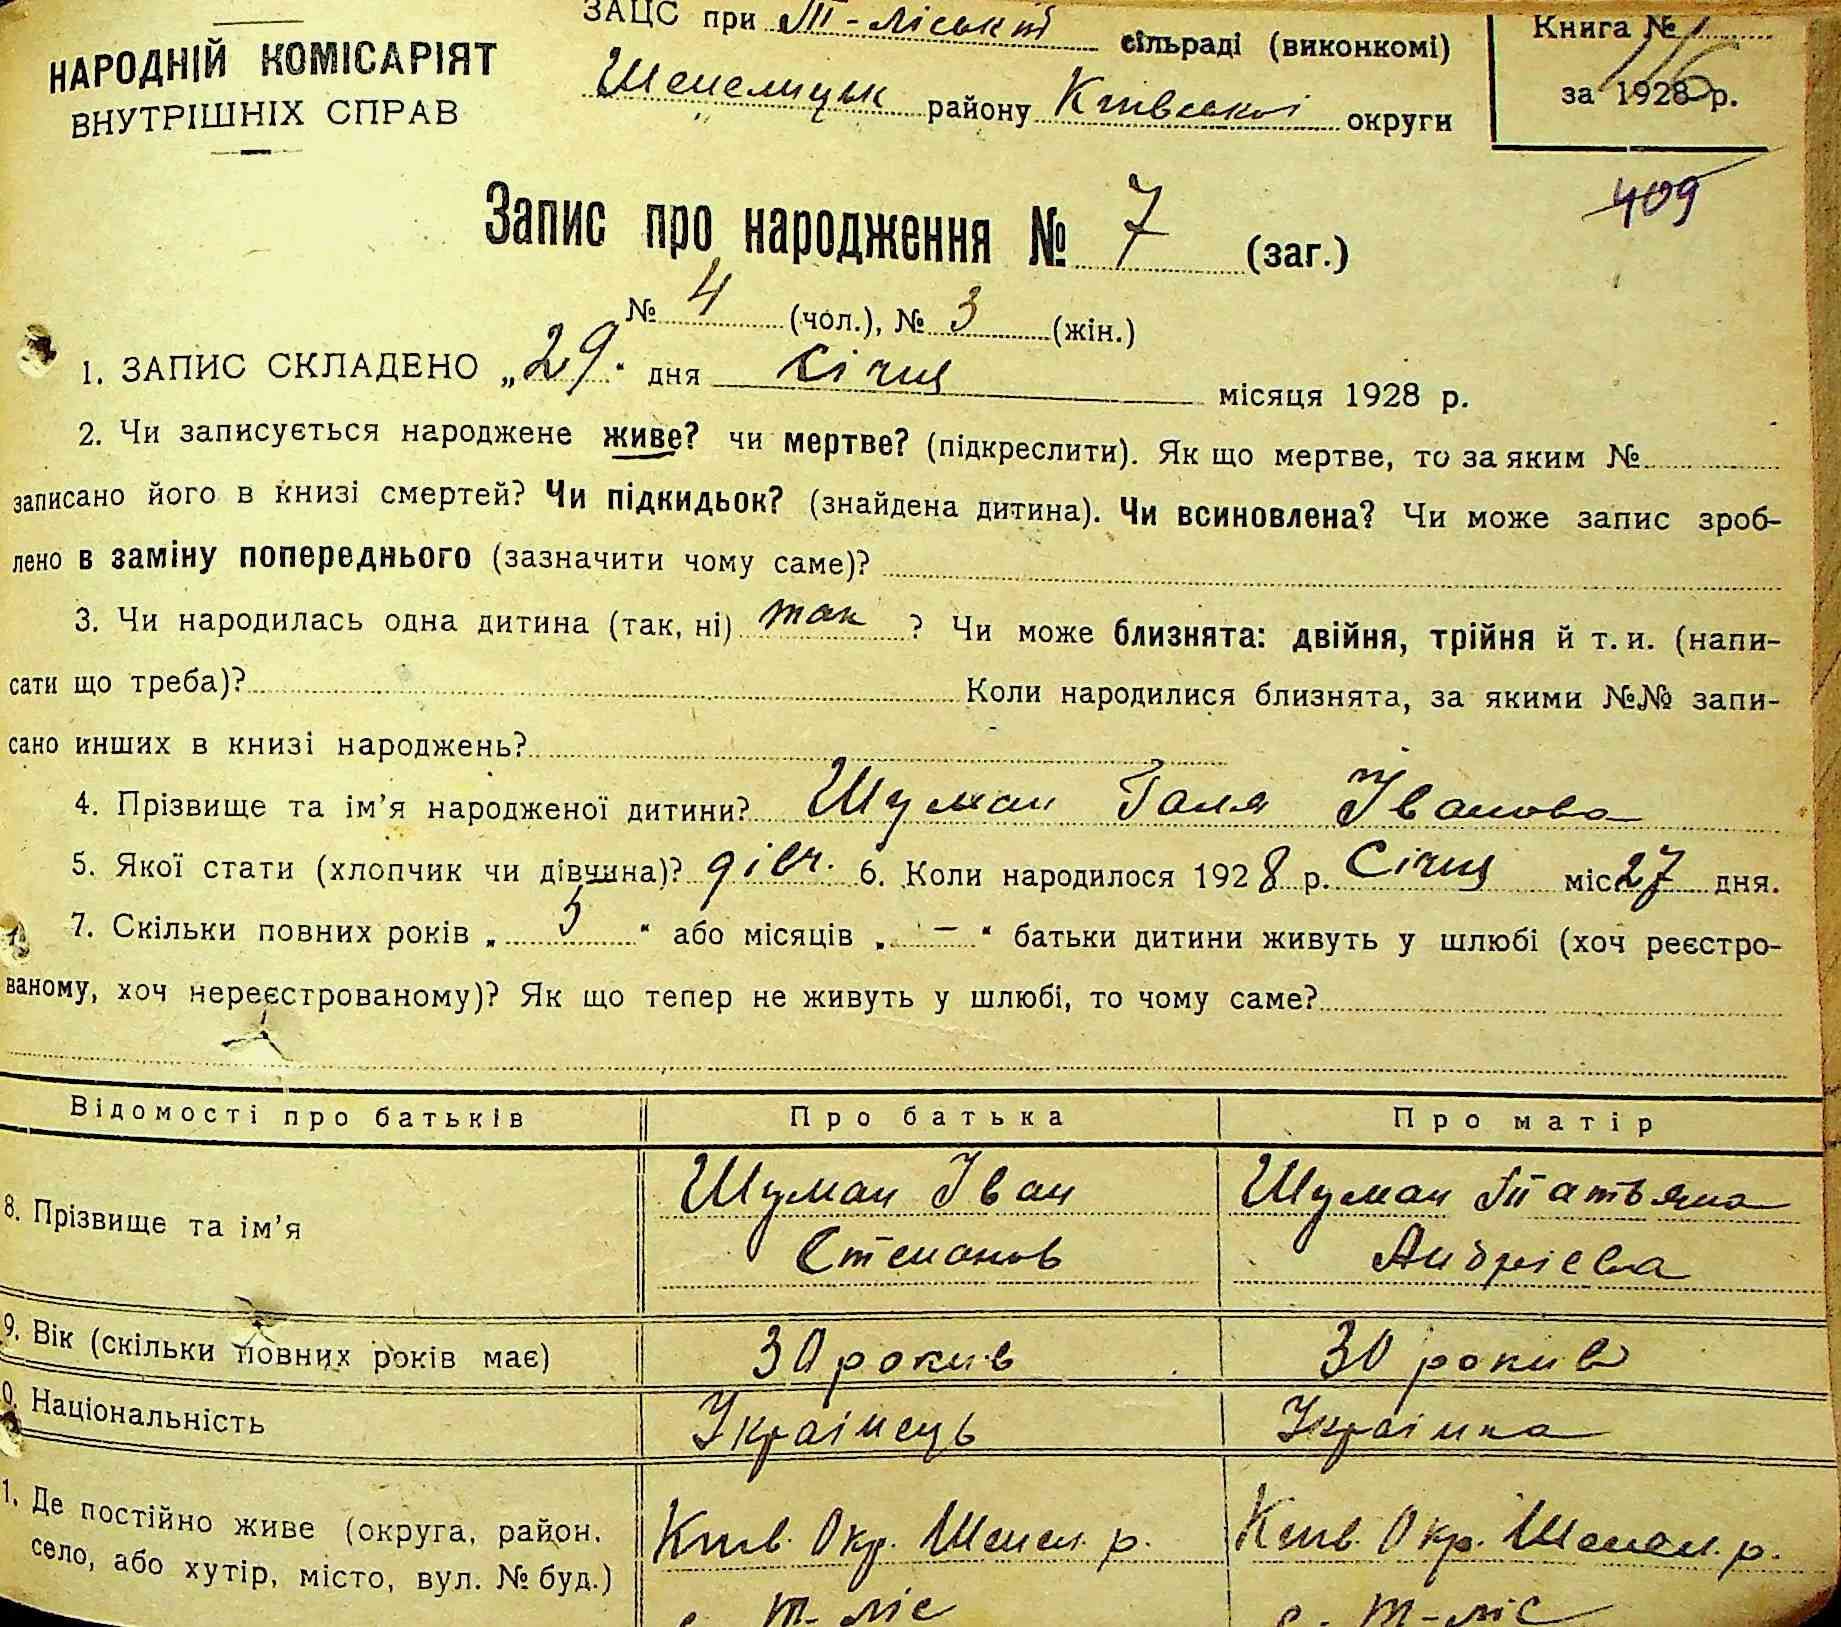 ЗАЦС при Т-ліській сільраді (виконкомі)
Шепелицьк району Київської округи
НАРОДНІЙ КОМІСАРІЯТ
ВНУТРІШНІХ СПРАВ
Книга № 1
за 1928 р.
116
409
Запис про народження № 7 (заг.)
№ 4 (чол.), № 3 (жін.)
1. ЗАПИС СКЛАДЕНО „29“ дня Січня місяця 1928 р.
2. Чи записується народжене живе? чи мертве? (підкреслити). Як що мертве, то за яким №
записано його в книзі смертей? Чи підкидьок? (знайдена дитина). Чи всиновлена? Чи може запис зроб-
лено в заміну попереднього (зазначити чому саме)?
3. Чи народилась одна дитина (так, ні) так ? Чи може близнята: двійня, трійня й т. и. (напи-
сати що треба)? Коли народилися близнята, за якими №№ запи-
сано инших в книзі народжень?
4. Прізвище та ім’я народженої дитини? Шуман Галя Іванова
5. Якої стати (хлопчик чи дівчина)? дівч. 6. Коли народилося 1928 р. Січня міс. 27 дня.
7. Скільки повних років „ 5 “ або місяців „ — “ батьки дитини живуть у шлюбі (хоч реєстро-
ваному, хоч нереєстрованому)? Як що тепер не живуть у шлюбі, то чому саме?
Відомості про батьків Про батька Про матір
8. Прізвище та ім’я Шуман Іван Шуман Татьяна
Степанов Андрієва
9. Вік (скільки повних років має) 30 рокив 30 рокив
0. Національність Українець Українка
1. Де постійно живе (округа, район, Київ. Окр. Шепел. р. Київ. Окр. Шепел. р.
село, або хутір, місто, вул. № буд.) с. Т-ліс с. Т-ліс